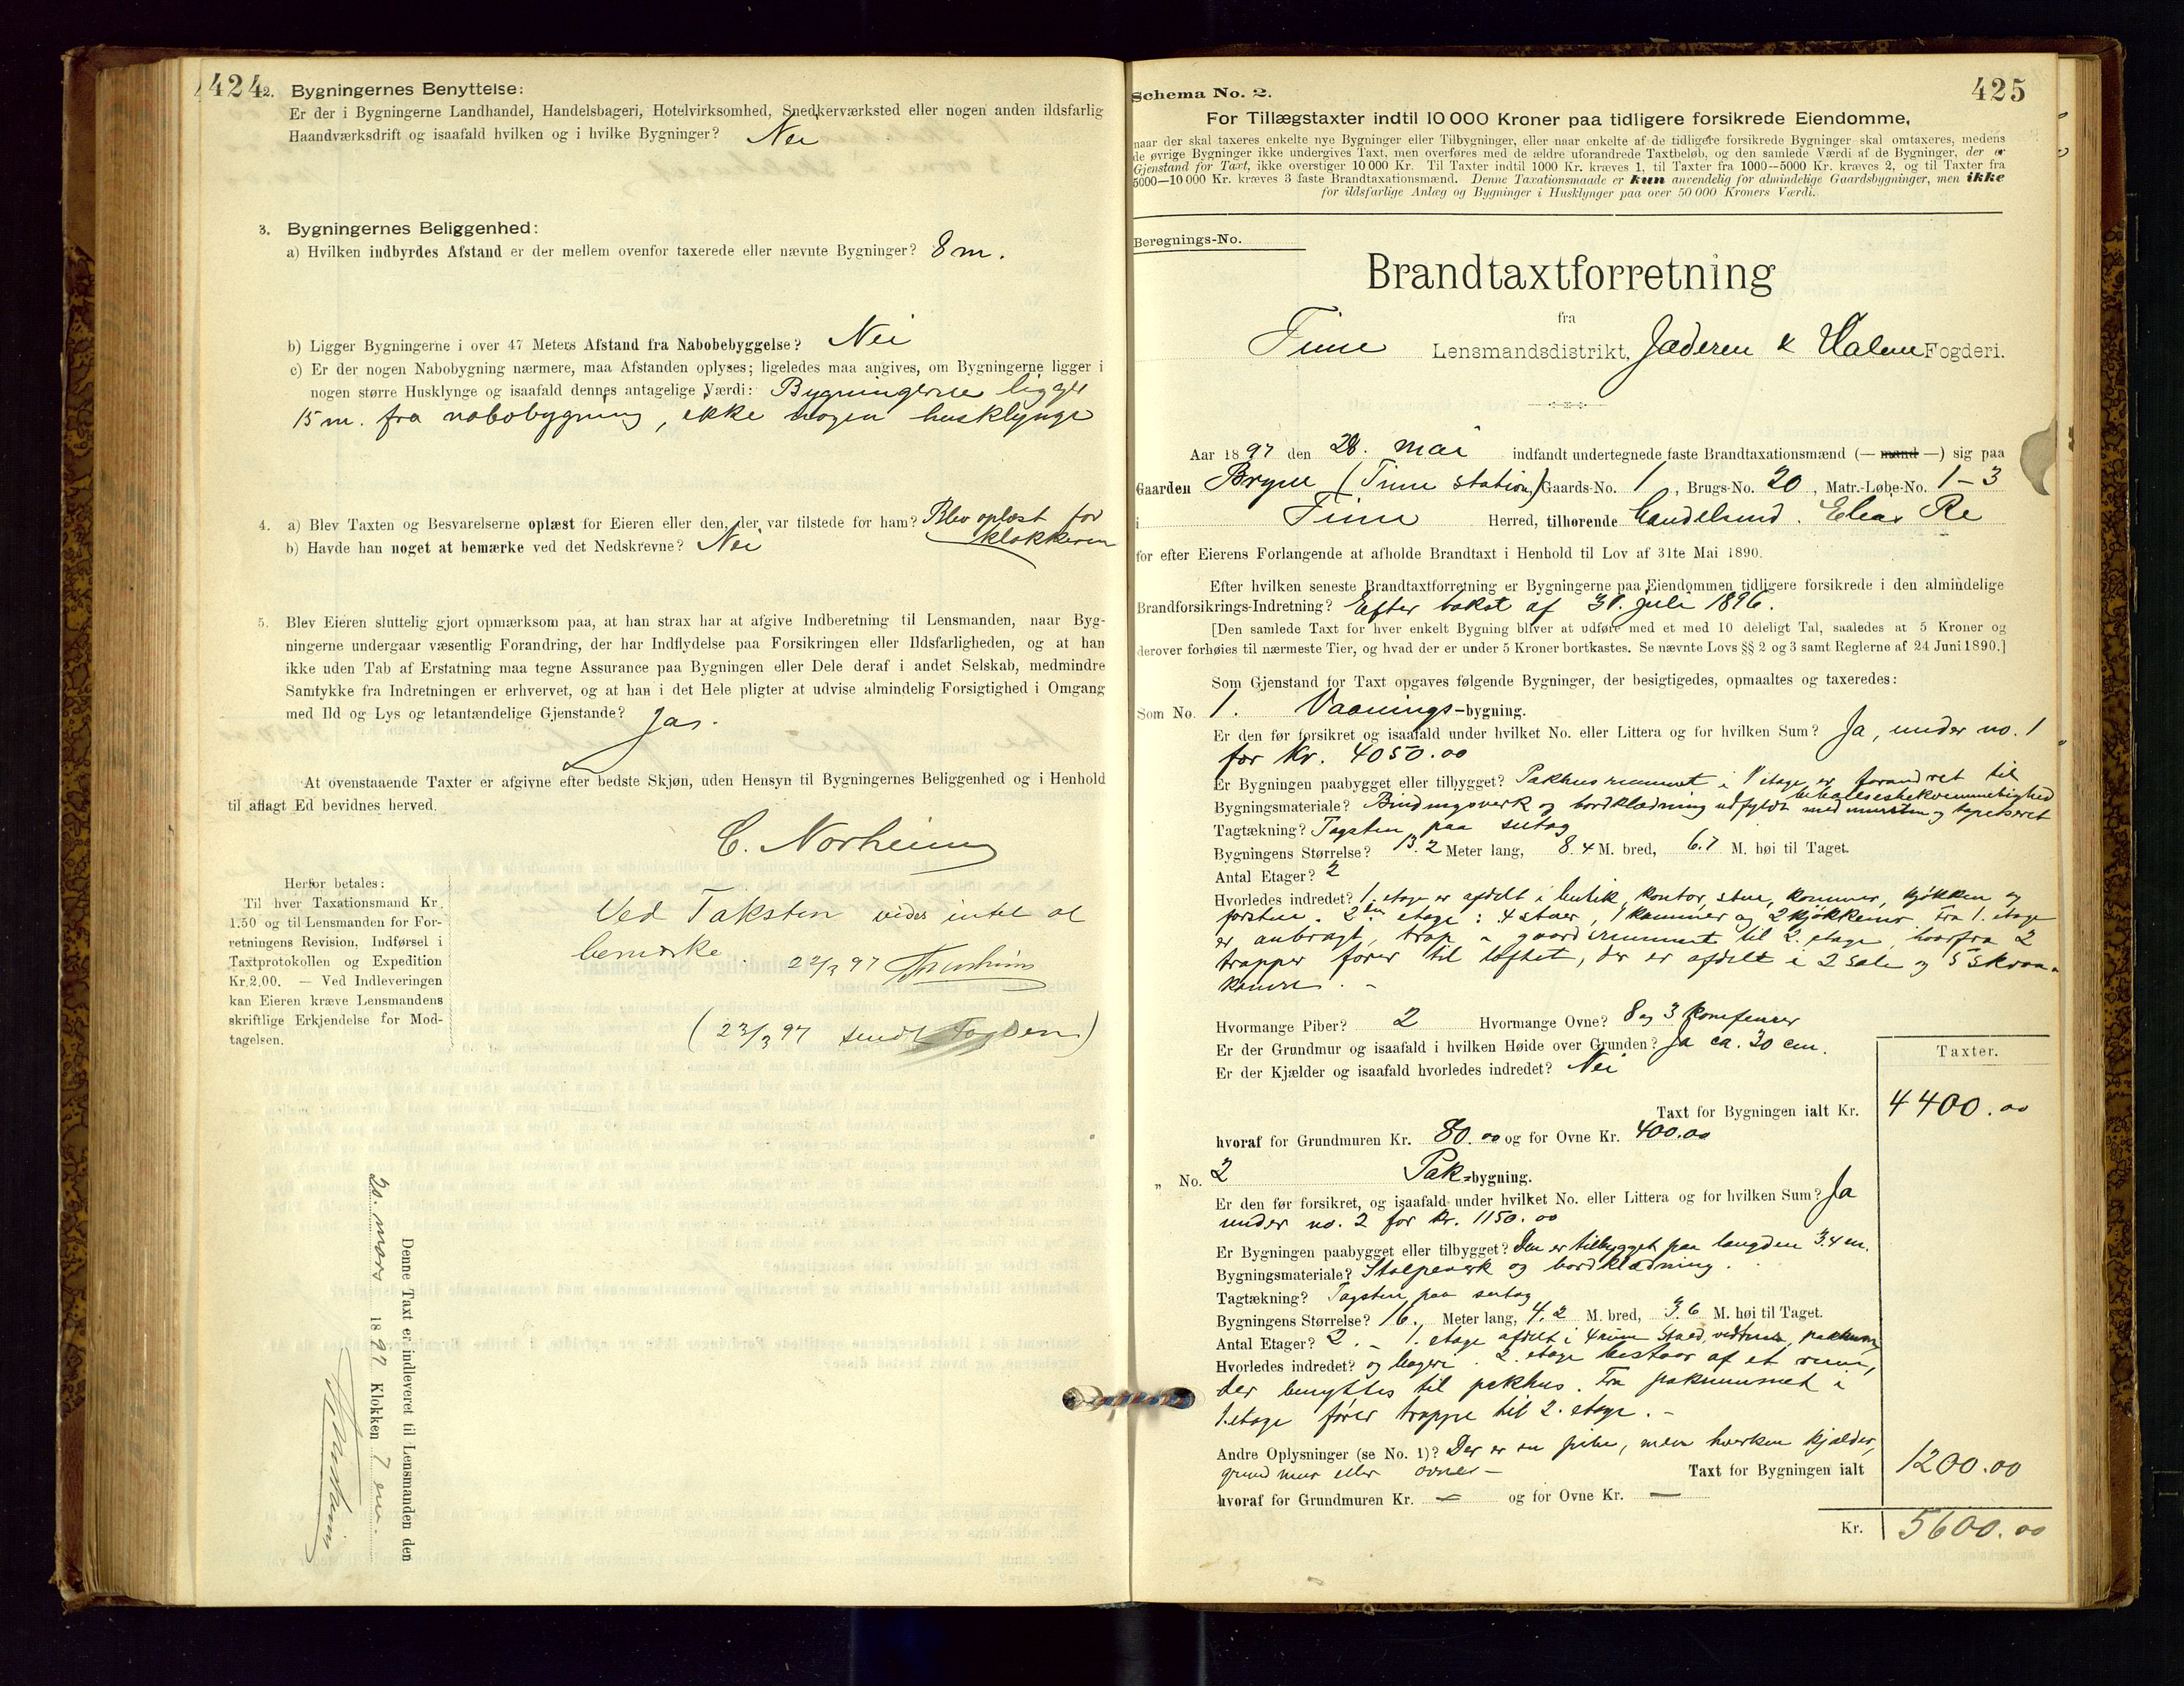 424
2. Bygningernes Benyttelse:
Er der i Bygningerne Landhandel, Handelsbageri, Hotelvirksomhed, Snedkerværksted eller nogen anden ildsfarlig
Haandværksdrift og isaafald hvilken og i hvilke Bygninger? Nei
3. Bygningernes Beliggenhed:
a) Hvilken indbyrdes Afstand er der mellem ovenfor taxerede eller nævnte Bygninger? 8 m.
b) Ligger Bygningerne i over 47 Meters Afstand fra Nabobebyggelse? Nei
c) Er der nogen Nabobygning nærmere, maa Afstanden oplyses; ligeledes maa angives, om Bygningerne ligger i
nogen større Husklynge og isaafald dennes antagelige Værdi: Bygningerne ligger
15 m. fra nabobygning, ikke nogen husklynge
4. a) Blev Taxten og Besvarelserne oplæst for Eieren eller den, der var tilstede for ham? Blev oplæst for
klokkeren
b) Havde han noget at bemærke ved det Nedskrevne? Nei
5. Blev Eieren sluttelig gjort opmærksom paa, at han strax har at afgive Indberetning til Lensmanden, naar Byg-
ningerne undergaar væsentlig Forandring, der har Indflydelse paa Forsikringen eller Ildsfarligheden, og at han
ikke uden Tab af Erstatning maa tegne Assurance paa Bygningen eller Dele deraf i andet Selskab, medmindre
Samtykke fra Indretningen er erhvervet, og at han i det Hele pligter at udvise almindelig Forsigtighed i Omgang
med Ild og Lys og letantændelige Gjenstande? Ja.
At ovenstaaende Taxter er afgivne efter bedste Skjøn, uden Hensyn til Bygningernes Beliggenhed og i Henhold
til aflagt Ed bevidnes herved.
C. Norheim
Herfor betales:
Til hver Taxationsmand Kr.
1.50 og til Lensmanden for For-
retningens Revision, Indførsel i
Taxtprotokollen og Expedition
Kr. 2.00. — Ved Indleveringen
kan Eieren kræve Lensmandens
skriftlige Erkjendelse for Mod-
tagelsen.
Ved Taksten vides intet at
bemærke. 22/3 97
(23/3 97 sendt Fogden)
Denne Taxt er indleveret til Lensmanden den
20. mars 1897 Klokken 7 em.
425
Schema No. 2.
For Tillægstaxter indtil 10 000 Kroner paa tidligere forsikrede Eiendomme,
naar der skal taxeres enkelte nye Bygninger eller Tilbygninger, eller naar enkelte af de tidligere forsikrede Bygninger skal omtaxeres, medens
de øvrige Bygninger ikke undergives Taxt, men overføres med de ældre uforandrede Taxtbeløb, og den samlede Værdi af de Bygninger, der er
Gjenstand for Taxt, ikke overstiger 10 000 Kr. Til Taxter indtil 1000 Kr. kræves 1, til Taxter fra 1000—5000 Kr. kræves 2, og til Taxter fra
5000—10 000 Kr. kræves 3 faste Brandtaxationsmænd. Denne Taxationsmaade er kun anvendelig for almindelige Gaardsbygninger, men ikke
for ildsfarlige Anlæg og Bygninger i Husklynger paa over 50 000 Kroners Værdi.
Beregnings-No.
Brandtaxtforretning
fra
Time Lensmandsdistrikt, Jæderen & Dalene Fogderi.
Aar 1897 den 28. mai indfandt undertegnede faste Brandtaxationsmænd (— mand —) sig paa
Gaarden Bryne (Time station) Gaards-No. 1, Brugs-No. 20, Matr.-Løbe-No. 1-3
i Time Herred, tilhørende handelsmd. Elias Re
for efter Eierens Forlangende at afholde Brandtaxt i Henhold til Lov af 31te Mai 1890.
Efter hvilken seneste Brandtaxtforretning er Bygningerne paa Eiendommen tidligere forsikrede i den almindelige
Brandforsikrings-Indretning? Efter takst af 31. juli 1896.
[Den samlede Taxt for hver enkelt Bygning bliver at udføre med et med 10 deleligt Tal, saaledes at 5 Kroner og
derover forhøies til nærmeste Tier, og hvad der er under 5 Kroner bortkastes. Se nævnte Lovs §§ 2 og 3 samt Reglerne af 24 Juni 1890.]
Som Gjenstand for Taxt opgaves følgende Bygninger, der besigtigedes, opmaaltes og taxeredes:
Som No. 1. Vaanings-bygning.
Er den før forsikret og isaafald under hvilket No. eller Littera og for hvilken Sum? Ja, under no. 1
for kr. 4050.00
Er Bygningen paabygget eller tilbygget? Pakhusrummet i 1 etage er forandret til
beboelsesbekvemmelighed
Bygningsmateriale? Bindingsverk og bordklædning udfyldt med mursten og tapetseret
Tagtækning? Tagsten paa sutag
Bygningens Størrelse? 13.2 Meter lang, 8.4 M. bred, 6.7 M. høi til Taget.
Antal Etager? 2
Hvorledes indredet? 1. etage er afdelt i butik, kontor, stue, kammer, kjøkken og
forstue. 2den etage: 4 stuer, 1 kammer og 2 kjøkkener. Fra 1. etage
er anbragt trap i til 2. etage, hvorfra 2
trapper fører til loftet, der er afdelt i 2 sale og 5 skraa-
kamre. -
Hvormange Piber? 2 Hvormange Ovne? 8 og 3 komfurer
Er der Grundmur og isaafald i hvilken Høide over Grunden? Ja ca. 30 cm.
Er der Kjælder og isaafald hvorledes indredet? Nei
Taxter.
Taxt for Bygningen ialt Kr. 4400.00
hvoraf for Grundmuren Kr. 80.00 og for Ovne Kr. 400.00
„ No. 2 Pak-bygning.
Er den før forsikret, og isaafald under hvilket No. eller Littera og for hvilken Sum? Ja
under no. 2 for kr. 1150.00
Er Bygningen paabygget eller tilbygget? Den er tilbygget paa længden 3.4 m.
Bygningsmateriale? Stolpeverk og bordklædning.
Tagtækning? Tagsten paa sutag
Bygningens Størrelse? 16. Meter lang, 4.2 M. bred, 3.6 M. høi til Taget.
Antal Etager? 2. - 1. etage afdelt i 4 rum stald, pakkrum
Hvorledes indredet? og bageri. 2. etage bestaar af et rum,
der benyttes til pakhus. Fra pakrummet i
1. etage fører trappe til 2. etage. -
Andre Oplysninger (se No. 1)? Der er en pibe, men hverken kjælder,
grundmur eller ovne - Taxt for Bygningen ialt 1200.00
hvoraf for Grundmuren Kr. — og for Ovne Kr. —
Kr. 5600.00